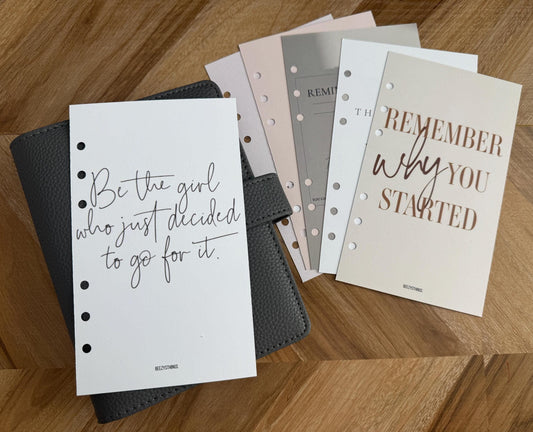 Be the girl
who just decided
to go for it.
BEEZYSTHINGS
REMIN
TH
REMEMBER
why YOU
STARTED
BEEZYSTHINGS